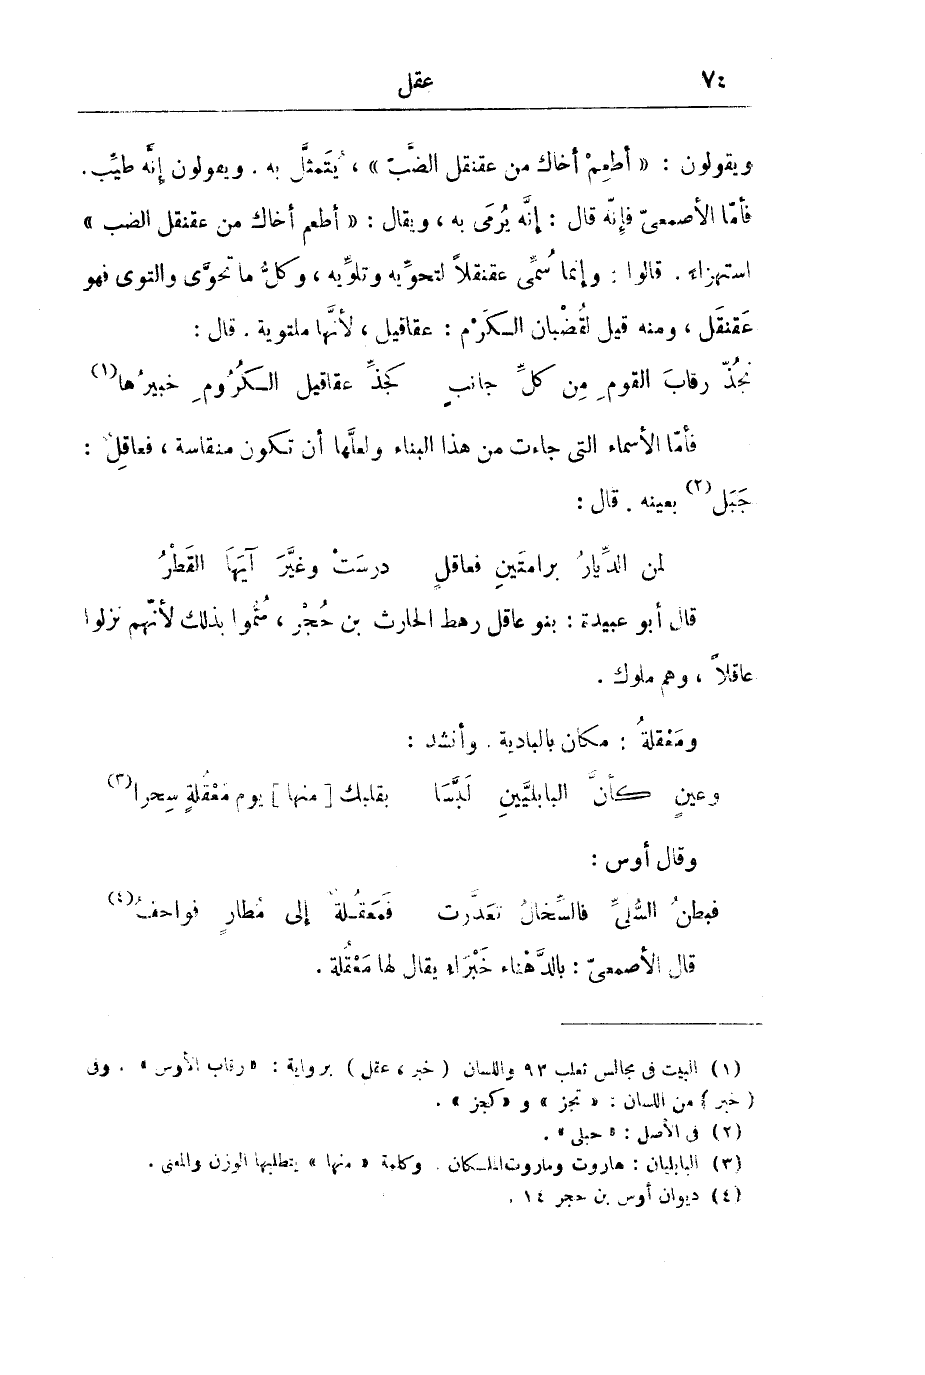 ٧٤ عقل
ويقولون : « أطعِمْ أخاك من عقنقل الضَّبّ » ، يُتَمثَّل به . ويقولون إنَّه طيِّب .
فأمّا الأصمعىّ فإنّه قال : إنَّه يُرمَى به ، ويقال : « أطعم أخاك من عقنقل الضب »
استهزاء . قالوا : وإنما سُمِّى عقنقلاً لتحوِّيه وتلوِّيه ، وكلُّ ما تحوَّى والتوى فهو
عَقنقَل ، ومنه قيل لقُضْبان الكَرْم : عقاقيل ، لأنَّها ملتوية . قال :
نجُذّ رقابَ القومِ مِن كلِّ جانبٍ كجذِّ عقاقيل الكُرُومِ خبيرُها(١)
فأمّا الأسماء التى جاءت من هذا البناء ولعلَّها أن تكون منقاسة ، فعاقِلٌ :
جَبَل(٢) بعينه . قال :
لمن الدِّيارُ برامتَينِ فعاقلٍ درسَتْ وغيَّرَ آيَهَا القَطْرُ
قال أبو عبيدة : بنو عاقل رهط الحارث بن حُجْر ، سُمُّوا بذلك لأنّهم نزلوا
عاقلاً ، وهم ملوك .
ومَعْقلةُ : مكان بالبادية . وأنشد :
وعينٍ كأنَّ البابليَّينِ لَبَّسَا بقلبك [ منها ] يوم مَعْقُلةٍ سِحرا(٣)
وقال أوس :
فبطنُ السُّلىِّ فالسِّخالُ تعَذَّرت فَمَعْقُلةٌ إلى مُطارٍ فواحفُ(٤)
قال الأصمعىّ : بالدَّهْناء خَبْرَاء يقال لها مَعْقُلة .
(١) البيت فى مجالس ثعلب ٩٣ واللسان ( خبر ، عقل ) برواية : « رقاب الأوس » . وفى
( خبر ) من اللسان : « تجز » و « كجز » .
(٢) فى الأصل : « حبلى » .
(٣) البابليان : هاروت وماروت الملكان . وكلمة « منها » يتطلبها الوزن والمعنى .
(٤) ديوان أوس بن حجر ١٤ .